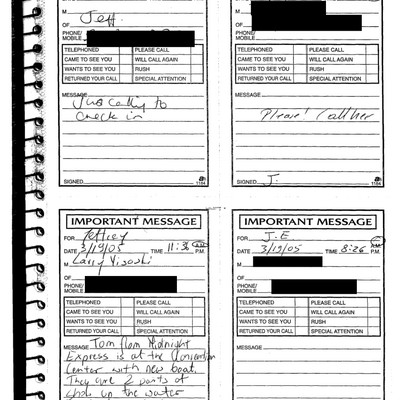 M Jeff.
OF
PHONE/
MOBILE
TELEPHONED PLEASE CALL
CAME TO SEE YOU WILL CALL AGAIN
WANTS TO SEE YOU RUSH
RETURNED YOUR CALL SPECIAL ATTENTION
MESSAGE
Just calling to
check in
SIGNED 1184
M
OF
PHONE/
MOBILE
TELEPHONED PLEASE CALL
CAME TO SEE YOU WILL CALL AGAIN
WANTS TO SEE YOU RUSH
RETURNED YOUR CALL SPECIAL ATTENTION
MESSAGE
Please! Call her
SIGNED J. 1184
IMPORTANT MESSAGE
FOR Jeffrey
DATE 3/19/05 TIME 11:36 P.M.
M Larry Visoski
OF
PHONE/
MOBILE
TELEPHONED PLEASE CALL
CAME TO SEE YOU WILL CALL AGAIN
WANTS TO SEE YOU RUSH
RETURNED YOUR CALL SPECIAL ATTENTION
MESSAGE Tom from Midnight
Express is at the Convention
Center with new boat.
They are 2 parts of
up the water
IMPORTANT MESSAGE
FOR J.E
DATE 3/19/05 TIME 8:26 P.M.
M
OF
PHONE/
MOBILE
TELEPHONED PLEASE CALL
CAME TO SEE YOU WILL CALL AGAIN
WANTS TO SEE YOU RUSH
RETURNED YOUR CALL SPECIAL ATTENTION
MESSAGE